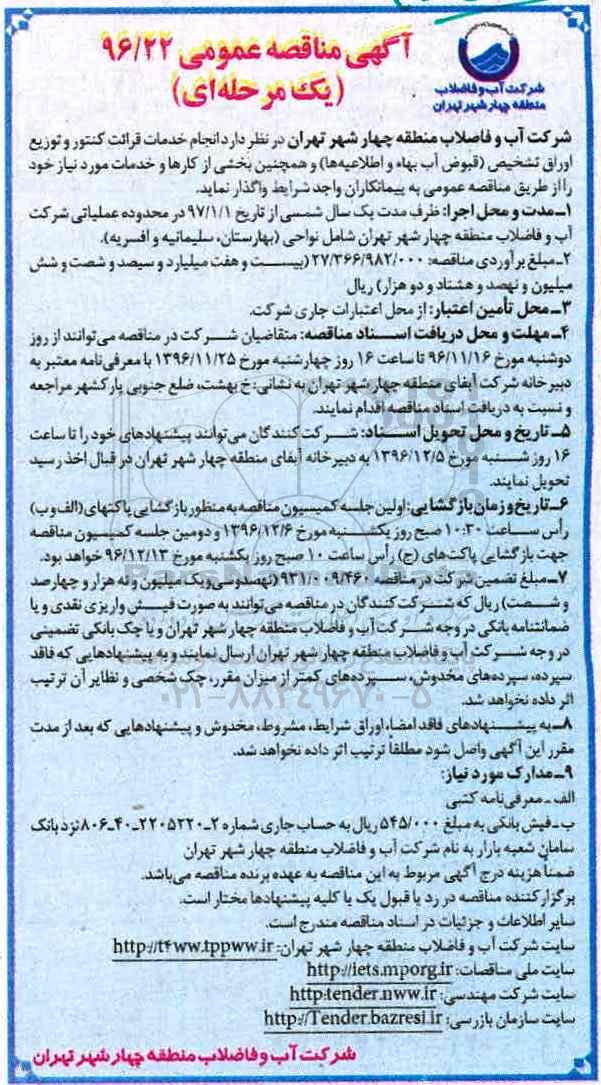 آگهی مناقصه عمومی ۹۶/۲۲
(یک مرحله‌ای)
شرکت آب و فاضلاب
منطقه چهار شهر تهران
شرکت آب و فاضلاب منطقه چهار شهر تهران در نظر دارد انجام خدمات قرائت کنتور و توزیع
اوراق تشخیص (قبوض آب بهاء و اطلاعیه‌ها) و همچنین بخشی از کارها و خدمات مورد نیاز خود
را از طریق مناقصه عمومی به پیمانکاران واجد شرایط واگذار نماید.
۱ـ مدت و محل اجرا: ظرف مدت یک سال شمسی از تاریخ ۹۷/۱/۱ در محدوده عملیاتی شرکت
آب و فاضلاب منطقه چهار شهر تهران شامل نواحی (بهارستان، سلیمانیه و افسریه).
۲ـ مبلغ برآوردی مناقصه: ۲۷/۳۶۶/۹۸۲/۰۰۰ (بیست و هفت میلیارد و سیصد و شصت و شش
میلیون و نهصد و هشتاد و دو هزار) ریال
۳ـ محل تأمین اعتبار: از محل اعتبارات جاری شرکت.
۴ـ مهلت و محل دریافت اسناد مناقصه: متقاضیان شرکت در مناقصه می‌توانند از روز
دوشنبه مورخ ۹۶/۱۱/۱۶ تا ساعت ۱۶ روز چهارشنبه مورخ ۱۳۹۶/۱۱/۲۵ با معرفی‌نامه معتبر به
دبیرخانه شرکت آبفای منطقه چهار شهر تهران به نشانی: خ بهشت، ضلع جنوبی پارکشهر مراجعه
و نسبت به دریافت اسناد مناقصه اقدام نمایند.
۵ـ تاریخ و محل تحویل اسناد: شرکت کنندگان می‌توانند پیشنهادهای خود را تا ساعت
۱۶ روز شنبه مورخ ۱۳۹۶/۱۲/۵ به دبیرخانه آبفای منطقه چهار شهر تهران در قبال اخذ رسید
تحویل نمایند.
۶ـ تاریخ و زمان بازگشایی: اولین جلسه کمیسیون مناقصه به منظور بازگشایی پاکتهای (الف و ب)
رأس ساعت ۱۰:۳۰ صبح روز یکشنبه مورخ ۱۳۹۶/۱۲/۶ و دومین جلسه کمیسیون مناقصه
جهت بازگشایی پاکت‌های (ج) رأس ساعت ۱۰ صبح روز یکشنبه مورخ ۹۶/۱۲/۱۳ خواهد بود.
۷ـ مبلغ تضمین شرکت در مناقصه ۹۳۱/۰۰۹/۴۶۰ (نهصدوسی‌ویک میلیون و نه هزار و چهارصد
و شصت) ریال که شرکت کنندگان در مناقصه می‌توانند به صورت فیش واریزی نقدی و یا
ضمانتنامه بانکی در وجه شرکت آب و فاضلاب منطقه چهار شهر تهران و یا چک بانکی تضمینی
در وجه شرکت آب و فاضلاب منطقه چهار شهر تهران ارسال نمایند و به پیشنهادهایی که فاقد
سپرده، سپرده‌های مخدوش، سپرده‌های کمتر از میزان مقرر، چک شخصی و نظایر آن ترتیب
اثر داده نخواهد شد.
۰۲۱-۸۸۳۴۹۶۷۰-۵
۸ـ به پیشنهادهای فاقد امضاء، اوراق شرایط، مشروط، مخدوش و پیشنهادهایی که بعد از مدت
مقرر این آگهی واصل شود مطلقا ترتیب اثر داده نخواهد شد.
۹ـ مدارک مورد نیاز:
الف ـ معرفی‌نامه کتبی
ب ـ فیش بانکی به مبلغ ۵۴۵/۰۰۰ ریال به حساب جاری شماره ۲ـ۲۲۰۵۲۲۰ـ۴۰ـ۸۰۶ نزد بانک
سامان شعبه بازار به نام شرکت آب و فاضلاب منطقه چهار شهر تهران
ضمناً هزینه درج آگهی مربوط به این مناقصه به عهده برنده مناقصه می‌باشد.
برگزار کننده مناقصه در رد یا قبول یک یا کلیه پیشنهادها مختار است.
سایر اطلاعات و جزئیات در اسناد مناقصه مندرج است.
سایت شرکت آب و فاضلاب منطقه چهار شهر تهران: http://t۴ww.tppww.ir
سایت ملی مناقصات: http://iets.mporg.ir
سایت شرکت مهندسی: http:tender.nww.ir
سایت سازمان بازرسی: http://Tender.bazresi.ir
شرکت آب و فاضلاب منطقه چهار شهر تهران